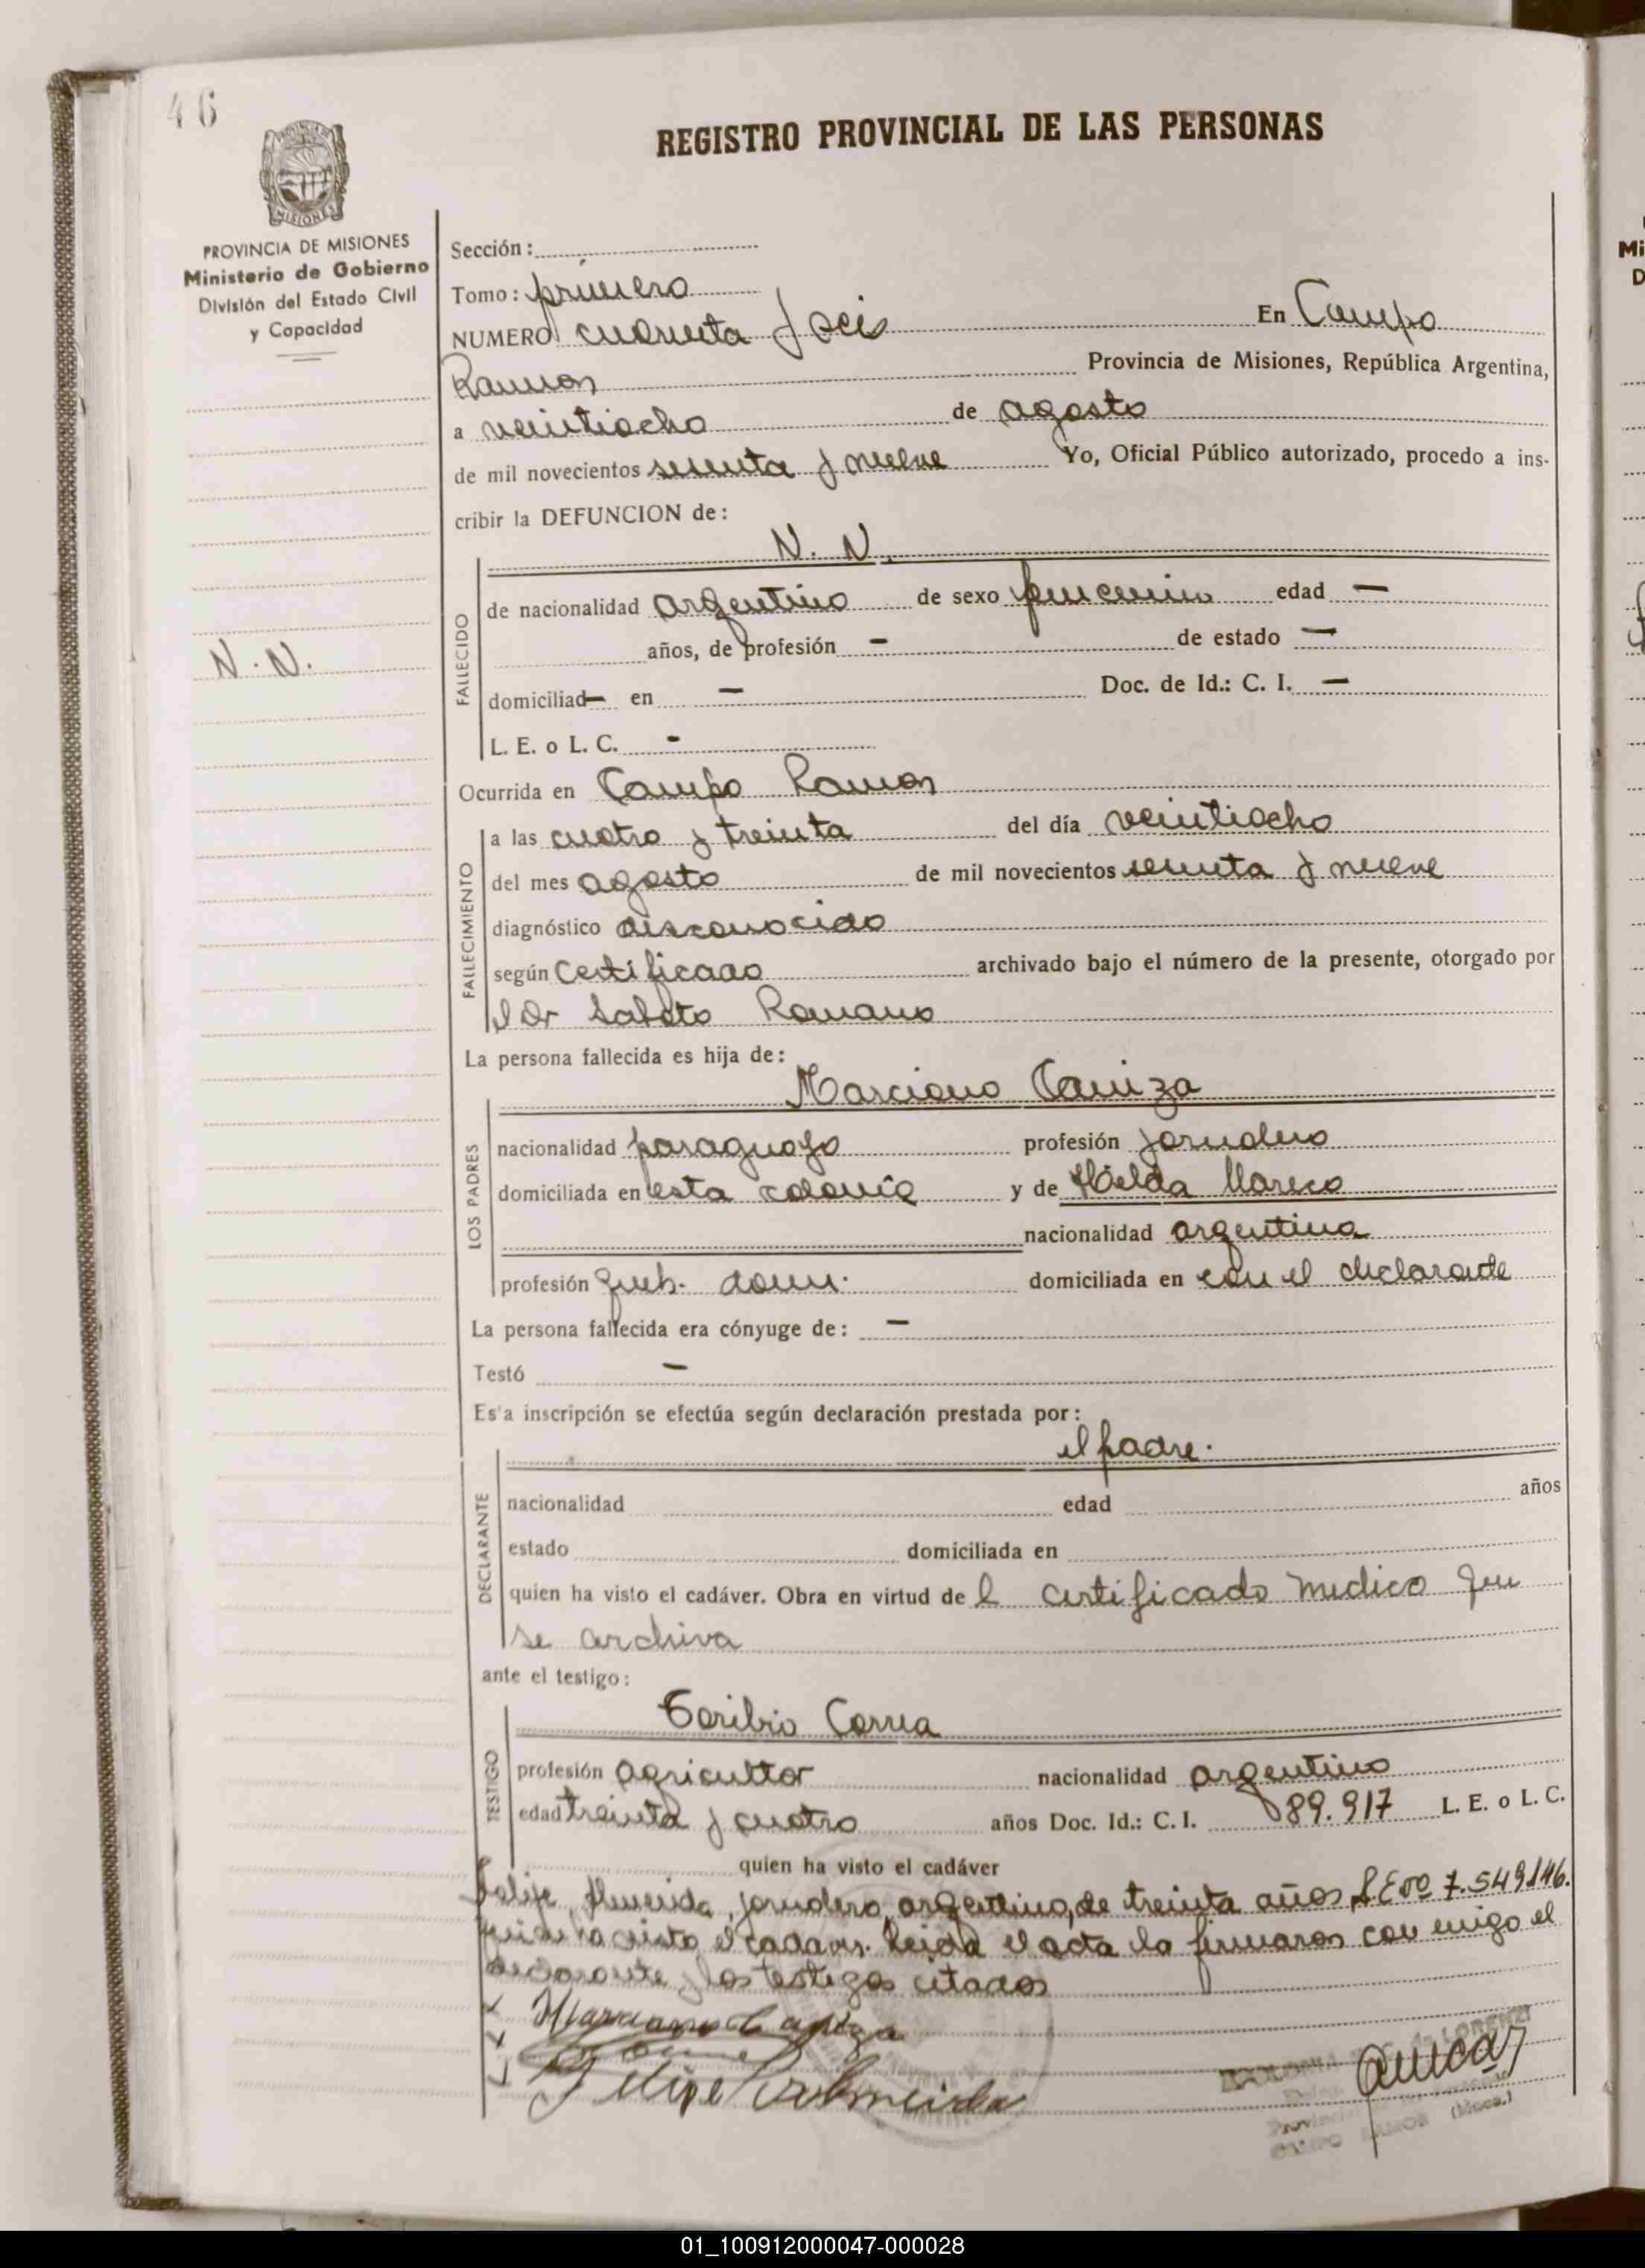 46
REGISTRO PROVINCIAL DE LAS PERSONAS
PROVINCIA DE MISIONES
MISIONES
PROVINCIA DE MISIONES
Ministerio de Gobierno
División del Estado Civil
y Capacidad
Sección:
Tomo: primero
NUMERO cuarenta y seis En Campo
Ramon Provincia de Misiones, República Argentina,
a veintiocho de agosto
de mil novecientos sesenta y nueve Yo, Oficial Público autorizado, procedo a ins-
cribir la DEFUNCION de:
N. N.
N. N.
FALLECIDO
de nacionalidad argentino de sexo femenino edad —
años, de profesión — de estado —
domiciliad— en — Doc. de Id.: C. I. —
L. E. o L. C. -
Ocurrida en Campo Ramon
FALLECIMIENTO
a las cuatro y treinta del día veintiocho
del mes agosto de mil novecientos sesenta y nueve
diagnóstico desconocido
según certificado archivado bajo el número de la presente, otorgado por
el Dr Sabato Romano
La persona fallecida es hija de:
Marciano Caniza
LOS PADRES
nacionalidad paraguayo profesión jornalero
domiciliada en esta colonia y de Hilda Mareco
nacionalidad argentina
profesión queh. dom. domiciliada en con el declarante
La persona fallecida era cónyuge de: —
Testó —
Es'a inscripción se efectúa según declaración prestada por:
el padre.
DECLARANTE
nacionalidad edad años
estado domiciliada en
quien ha visto el cadáver. Obra en virtud de l certificado medico que
se archiva
ante el testigo:
Toribio Correa
TESTIGO
profesión agricultor nacionalidad argentino
edad treinta y cuatro años Doc. Id.: C. I. 89.917 L. E. o L. C.
quien ha visto el cadáver
Felipe Almeida, jornalero, argentino, de treinta años, L.E nº 7.549.146.
quien ha visto el cadaver. Leida el acta la firmaron con migo el
declarante y los testigos citados
Marciano Caniza
Felipe Almeida
LORENZI
CAMPO RAMON (Mnes.)
01_100912000047-000028